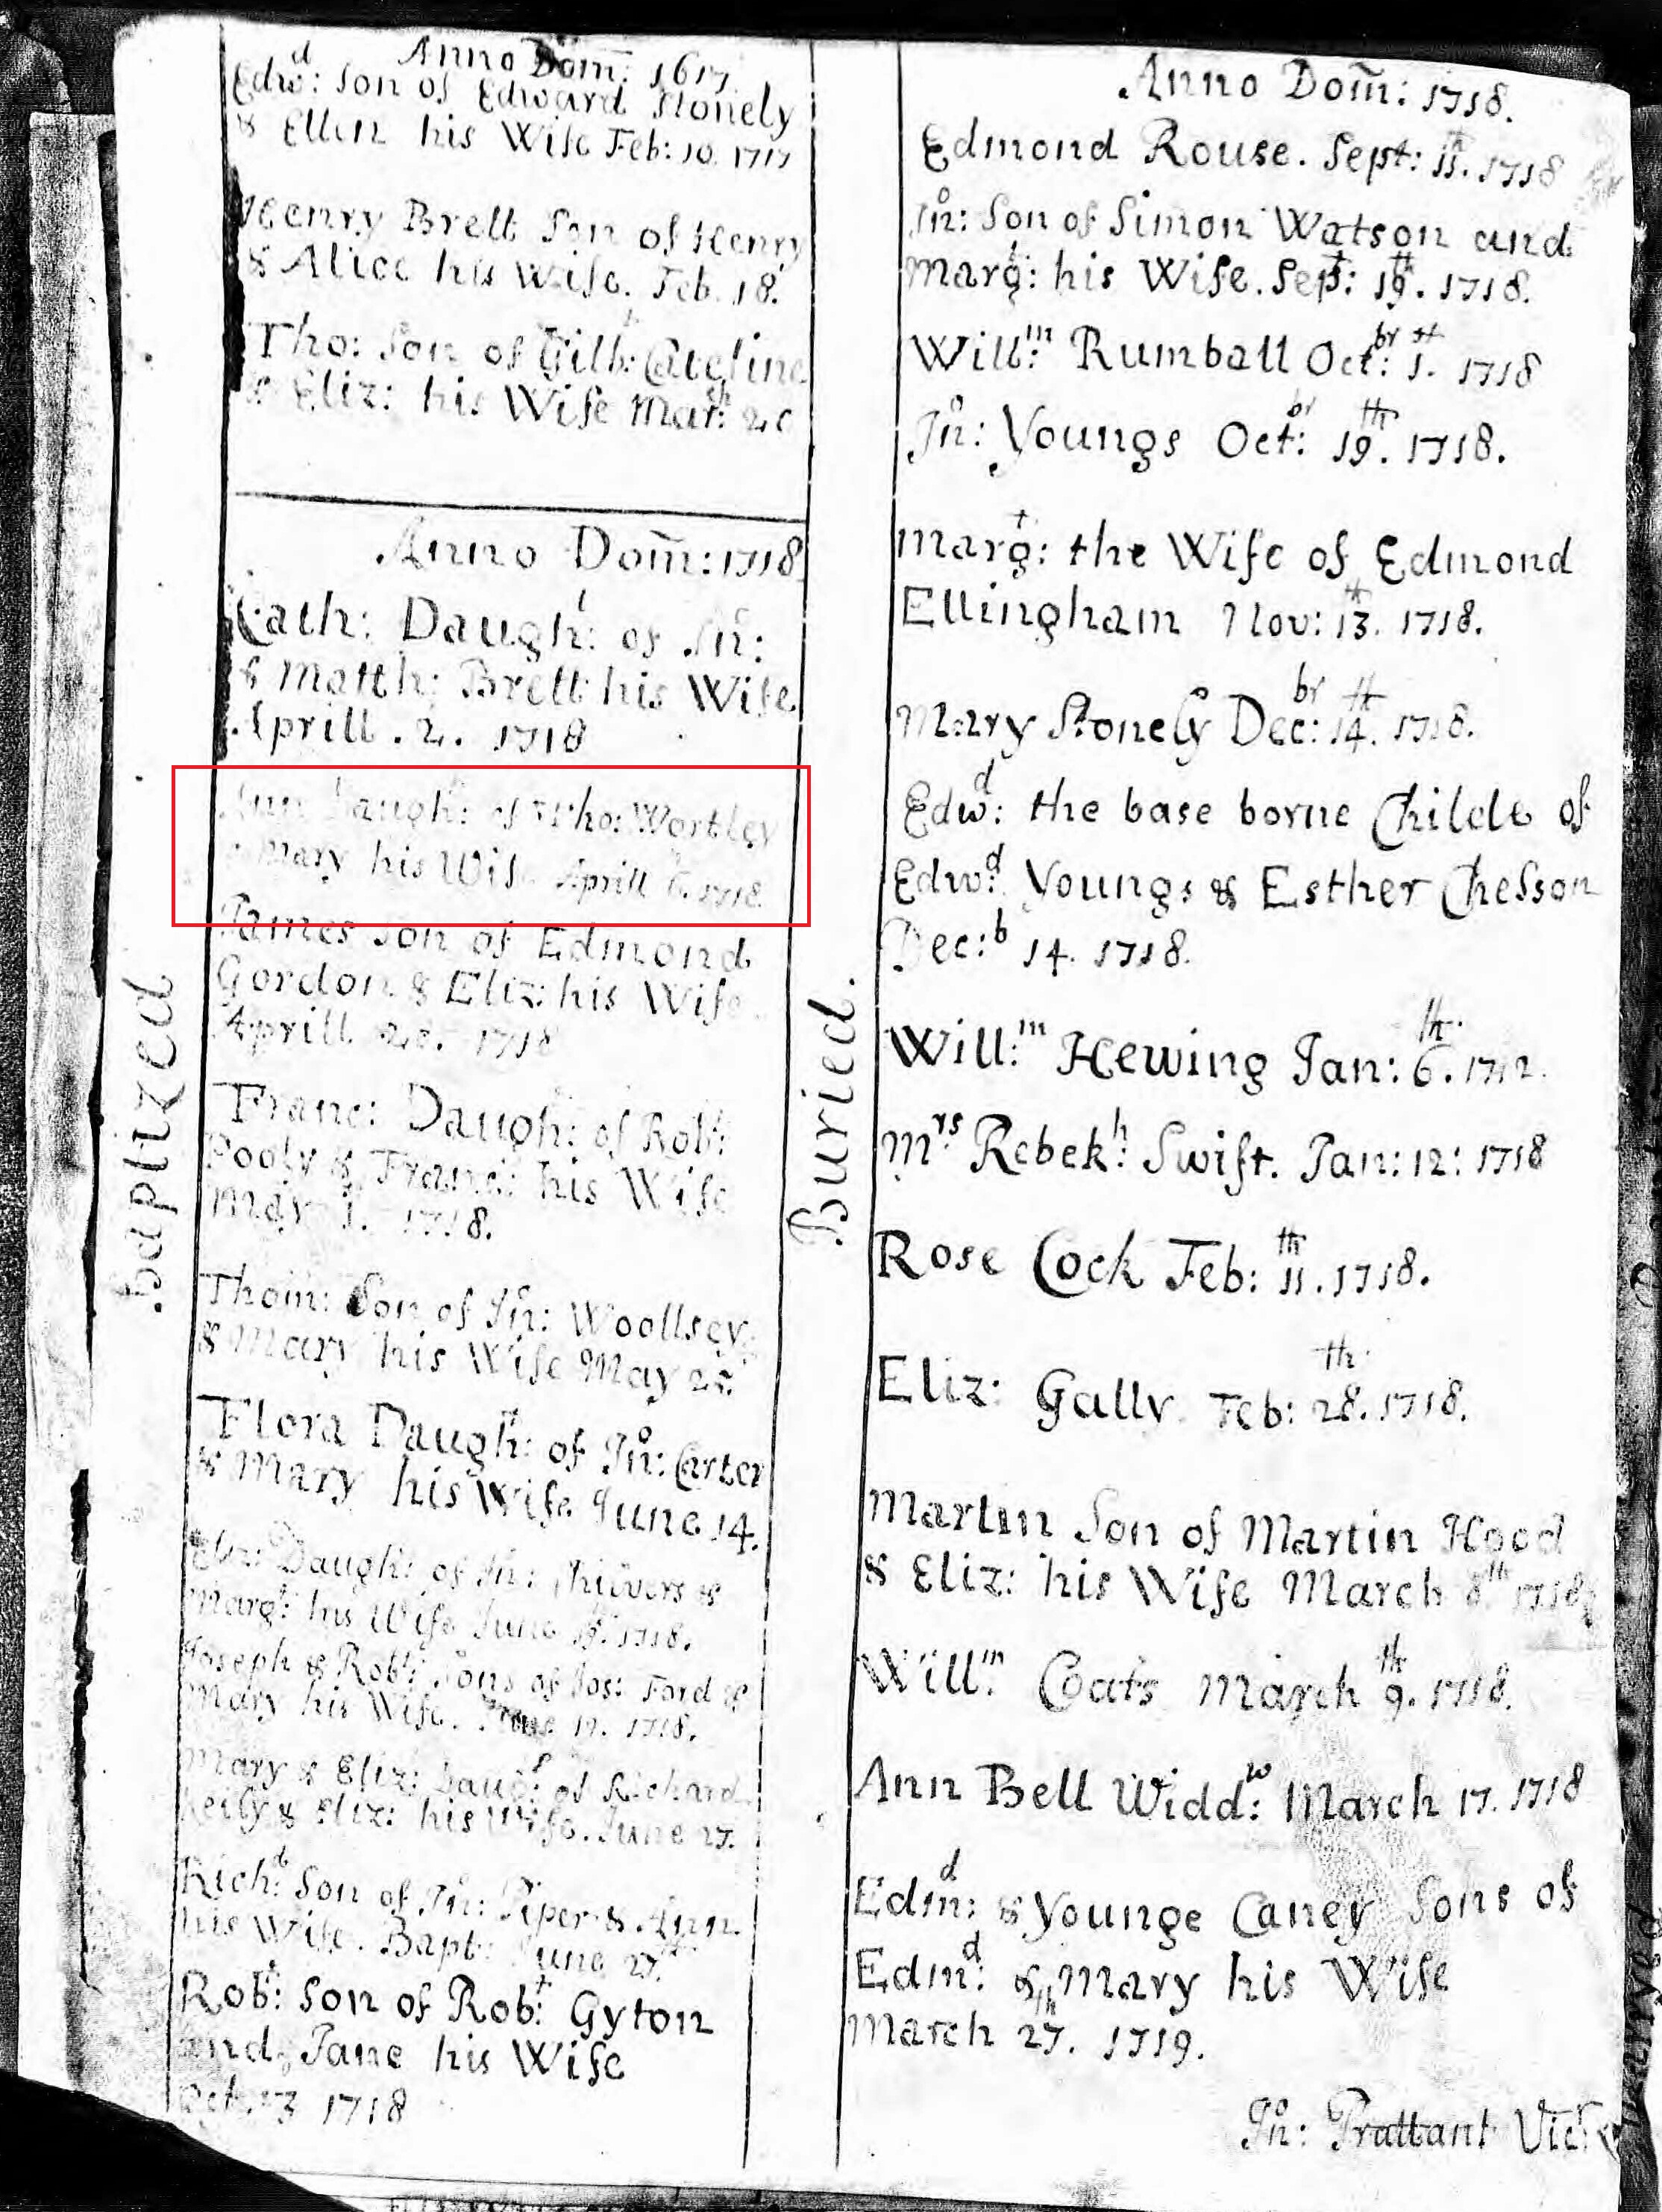 Anno Dom̄: 1617
Edwᵈ: Son of Edward Stonely
& Ellen his Wife Feb: 10. 1717
Henry Brett Son of Henry
& Alice his Wife. Feb. 18.
Tho: Son of Gilb: Aveline
& Eliz: his Wife Marᶜʰ:
Anno Dom̄: 1718
Cath: Daughᵗ: of Jnᵒ:
& Matth: Brett his Wife
Aprill . 2. 1718
Daughᵗ: of Tho: Wortley
& Mary his Wife Aprill 6. 1718
James Son of Edmond
Gordon & Eliz: his Wife
Aprill 1718
Franc: Daughᵗ: of Robᵗ:
Pooly & Franc: his Wife
May 1. 1718.
Thom: Son of Jnᵒ: Woollsey
& Mary his Wife May
Flora Daughᵗ: of Jnᵒ: Carter
& Mary his Wife June 14.
Eliz: Daughᵗ: of Jnᵒ: Chilvers &
Margᵗ: his Wife June 1718.
Joseph & Robᵗ: Sons of Jos: Ford &
Mary his Wife. June 17. 1718.
Mary & Eliz: Daugʳ: of Richard
Keily & Eliz: his Wife. June 27.
Richᵈ: Son of Jnᵒ: Piper & Ann
his Wife. Bapt: June 27ᵗʰ
Robᵗ: Son of Robᵗ: Gyton
and Jane his Wife
1718
Baptized
Anno Dom̄: 1718.
Edmond Rouse. Sept: 11ᵗʰ. 1718
Jnᵒ: Son of Simon Watson and
Margᵗ: his Wife. Sepᵗ: 19ᵗʰ. 1718.
Will:ᵐ Rumball Octᵇʳ: 1ˢᵗ. 1718
Jnᵒ: Youngs Octᵇʳ: 19ᵗʰ. 1718.
Margᵗ: the Wife of Edmond
Ellingham Nov: 13ᵗʰ. 1718.
Mary Stonely Decᵇʳ: 14ᵗʰ. 1718.
Edwᵈ: the base borne Childe of
Edwᵈ: Youngs & Esther Chesson
Dec:ᵇ 14. 1718.
Will:ᵐ Hewing Jan: 6ᵗʰ. 1712.
Mʳˢ Rebekʰ: Swift. Jan: 12: 1718
Rose Cock Feb: 11ᵗʰ. 1718.
Eliz: Gally Feb: 28ᵗʰ. 1718.
Martin Son of Martin Hood
& Eliz: his Wife March 8ᵗʰ 1718
Willᵐ: Coats March 9ᵗʰ. 1718.
Ann Bell Widdʷ: March 17. 1718
Edmᵈ: & Younge Caney Sons of
Edmᵈ: & Mary his Wife
March 27ᵗʰ. 1719.
Jnᵒ: Prattant Vicʳ
Buried.